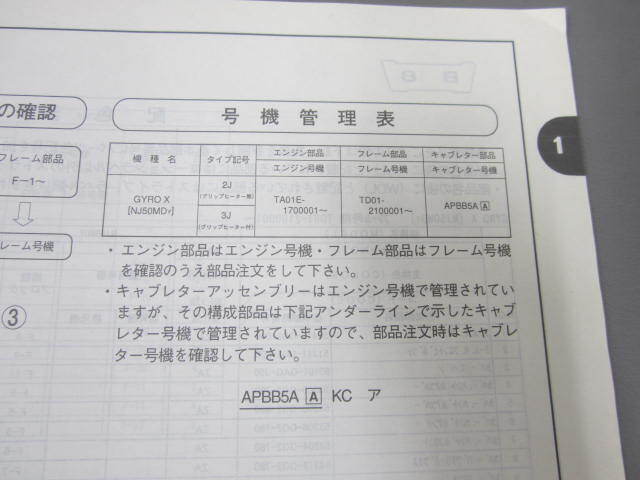 の確認
フレーム部品
F−1〜
レーム号機
③
号機管理表
1
機種名 タイプ記号 エンジン部品 フレーム部品 キャブレター部品
エンジン号機 フレーム号機 キャブレター号機
GYRO X
[NJ50MDY]
2J
(グリップヒーター無)
3J
(グリップヒーター付)
TA01E-
1700001〜
TD01-
2100001〜
APBB5A A
・エンジン部品はエンジン号機・フレーム部品はフレーム号機
を確認のうえ部品注文をして下さい。
・キャブレターアッセンブリーはエンジン号機で管理されてい
ますが、その構成部品は下記アンダーラインで示したキャブ
レター号機で管理されていますので、部品注文時はキャブレ
ター号機を確認して下さい。
APBB5A A KC ア